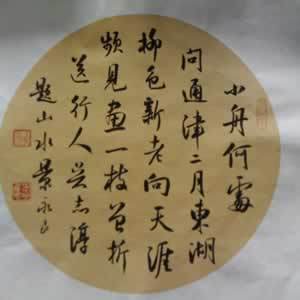 小舟何處
問通津二月東湖
柳色新老向天涯
頻見畫一枝曾折
送行人吳志淳
題山水景永